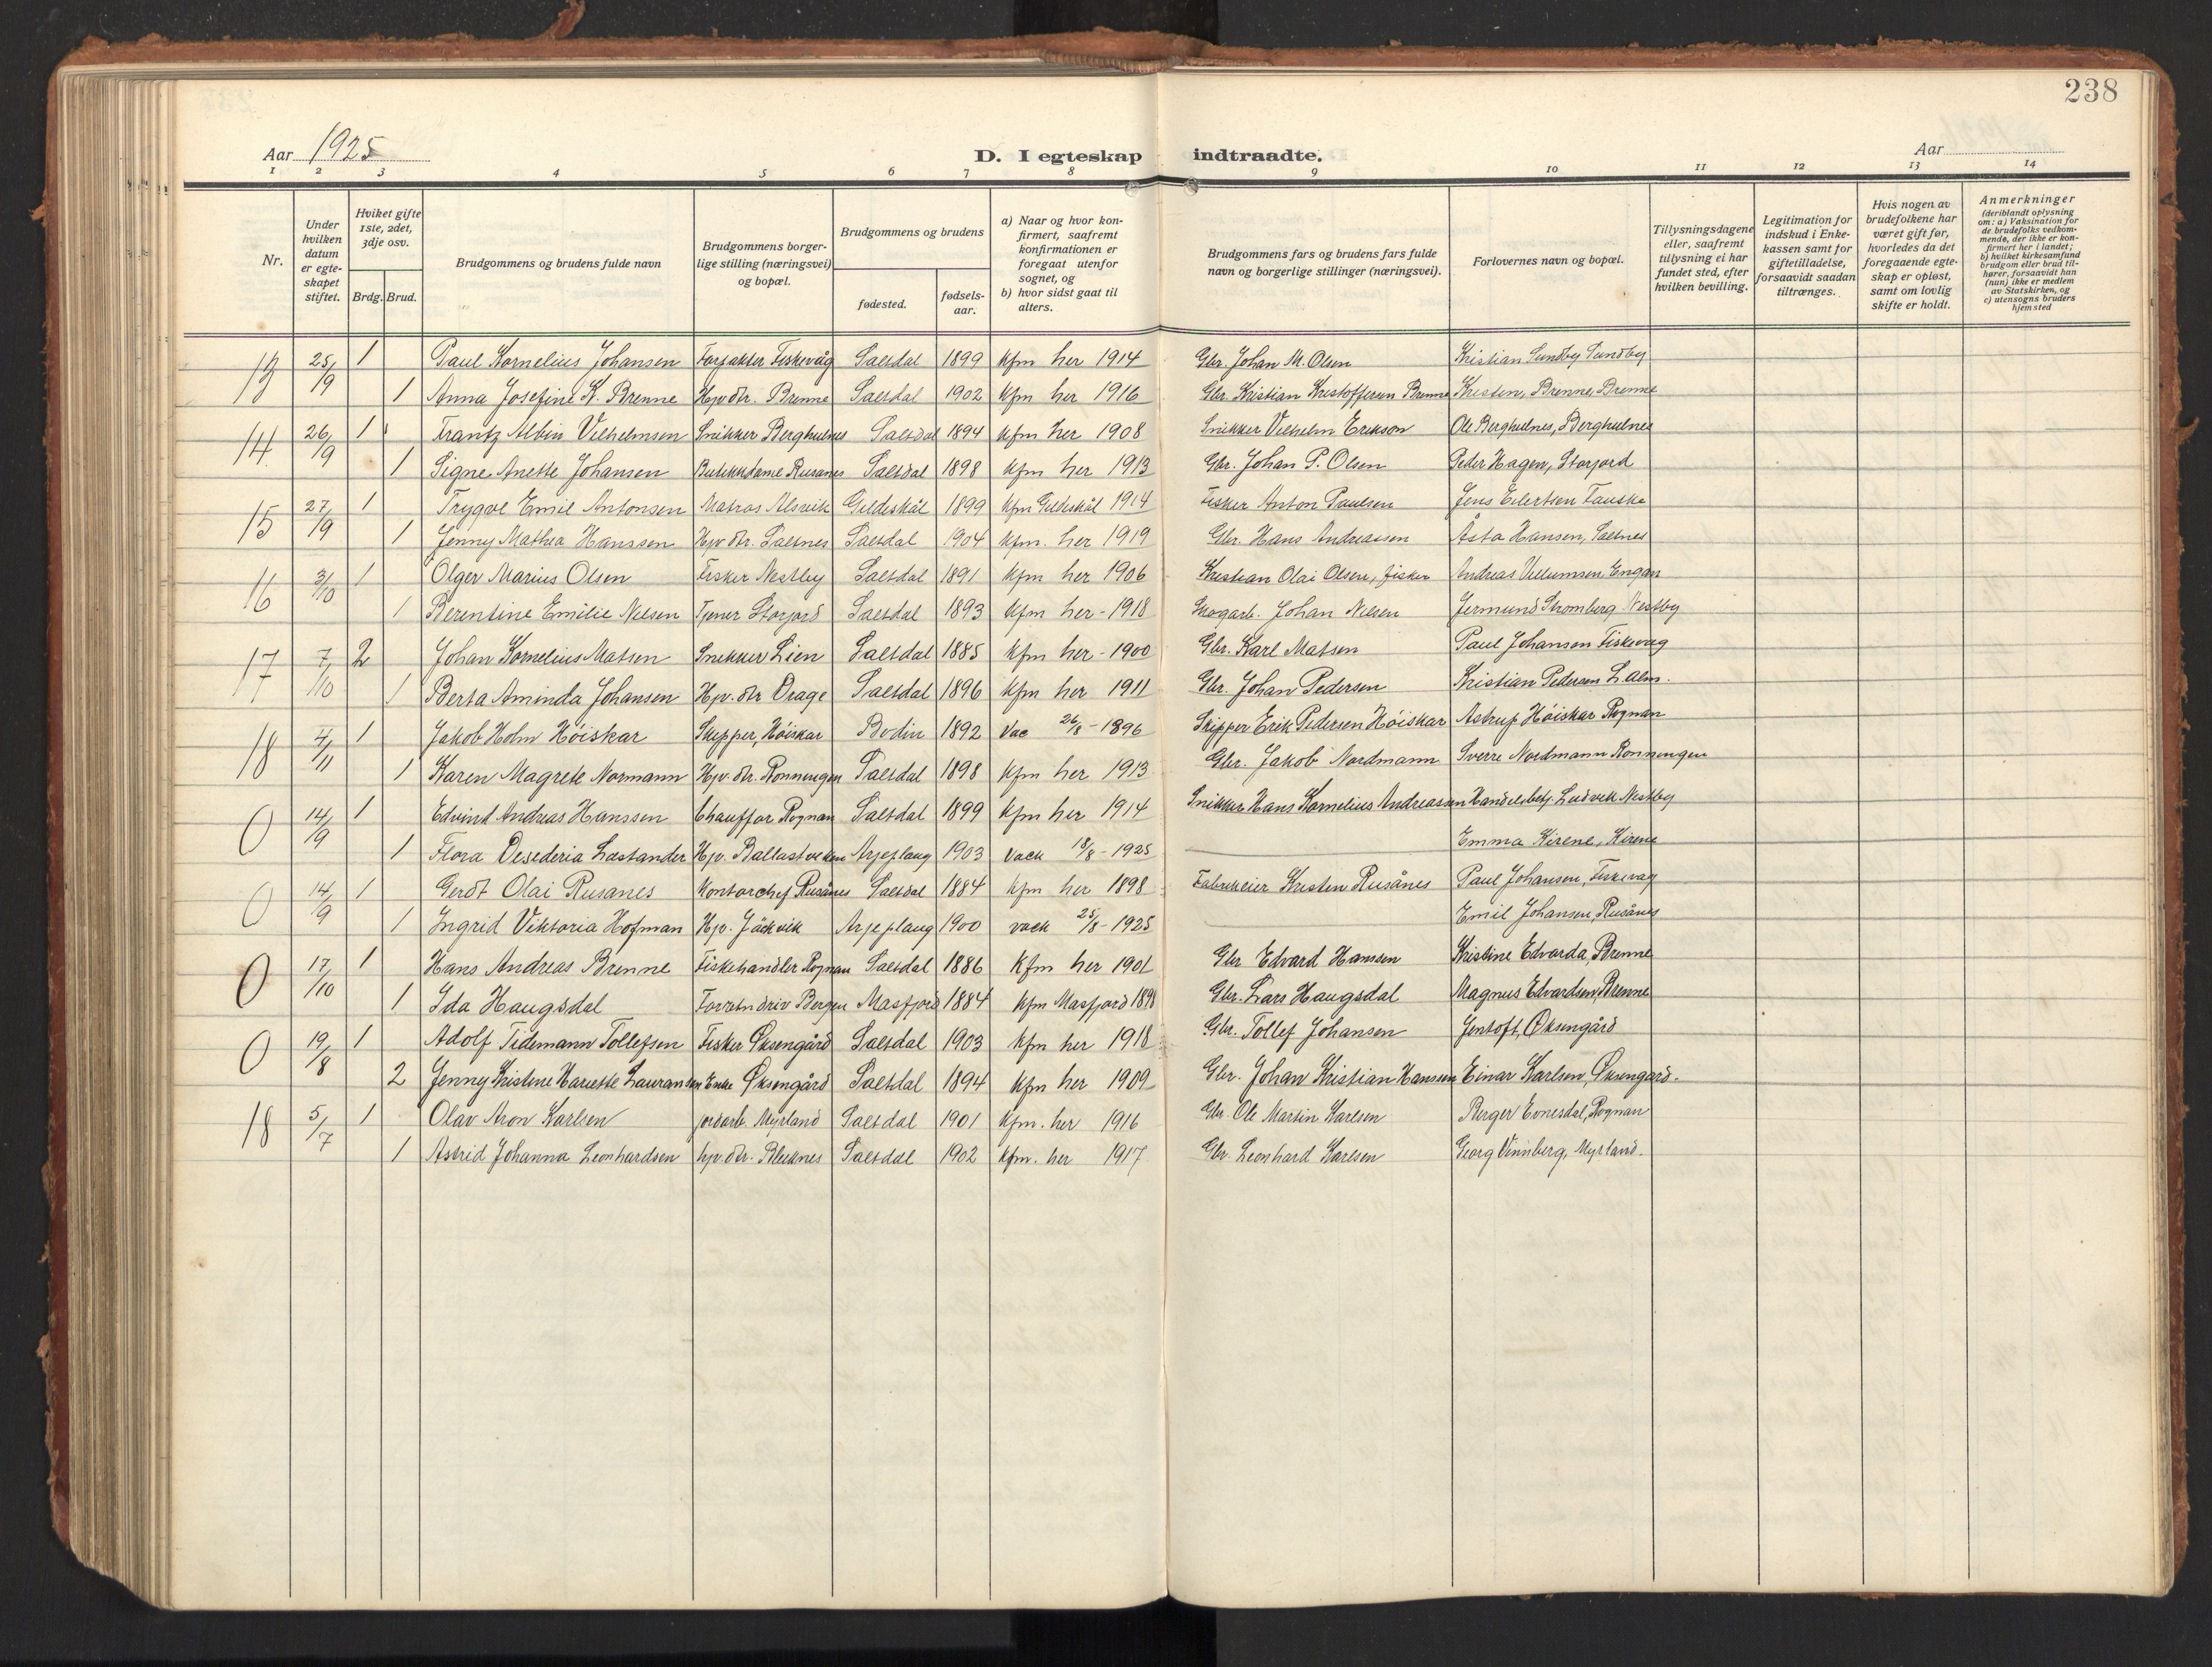 238
Aar 1925
D. I egteskap indtraadte.
Aar
1 2 3 4 5 6 7 8 9 10 11 12 13 14
Nr.
Under hvilken datum er egteskapet stiftet.
Hviket gifte 1ste, 2det, 3dje osv.
Brdg. Brud.
Brudgommens og brudens fulde navn
Brudgommens borgerlige stilling (næringsvei) og bopæl.
Brudgommens og brudens
fødested.
fødselsaar.
a) Naar og hvor konfirmert, saafremt konfirmationen er foregaat utenfor sognet, og
b) hvor sidst gaat til alters.
Brudgommens fars og brudens fars fulde navn og borgerlige stillinger (næringsvei).
Forlovernes navn og bopæl.
Tillysningsdagene eller, saafremt tillysning ei har fundet sted, efter hvilken bevilling.
Legitimation for indskud i Enkekassen samt for giftetilladelse, forsaavidt saadan tiltrænges.
Hvis nogen av brudefolkene har været gift før, hvorledes da det foregaaende egteskap er opløst, samt om lovlig skifte er holdt.
Anmerkninger
(deriblandt oplysning om: a) Vaksination for de brudefolks vedkommende, der ikke er konfirmert her i landet; b) hvilket kirkesamfund brudgom eller brud tilhører, forsaavidt han (hun) ikke er medlem av Statskirken, og c) utensogns bruders hjemsted
13 25/9 1 Paul Kornelius Johansen Forpakter Fiskevåg Saltdal 1899 Kfm her 1914 Gbr. Johan M. Olsen Kristian Sundby Sundby
1 Anna Josefine K. Brenne Hjv. dtr. Brenne Saltdal 1902 Kfm her 1916 Gbr. Kristian Kristoffersen Brenne Kristen, Brenne, Brenne
14 26/9 1 Frantz Albin Vilhelmsen Snikker Berghulnes Saltdal 1894 Kfm her 1908 Snikker Vilhelm Erikson Ole Berghulnes, Berghulnes
1 Signe Anette Johansen Butikkdame Rusanes Saltdal 1898 Kfm her 1913 Gbr. Johan P. Olsen Peder Hagen, Storjord
15 27/9 1 Trygve Emil Antonsen Matros Alsvik Gildeskål 1899 Kfm Gildeskål 1914 Fisker Anton Paulsen Jens Eilertsen Fauske
1 Jenny Mathea Hanssen Hjv. dtr. Saltnes Saltdal 1904 Kfm. her 1919 Gbr. Hans Andreassen Åsta Hansen, Saltnes
16 3/10 1 Olger Marius Olsen Fisker Nestby Saltdal 1891 Kfm her 1906 Kristian Olai Olsen, fisker Andreas Villumsen Engan
1 Berentine Emilie Nilsen Tjener Storjord Saltdal 1893 Kfm her - 1918 Skogarb. Johan Nilsen Jermund Stromberg Nestby
17 7/10 2 Johan Kornelius Matsen Snekker Lien Saltdal 1885 Kfm her - 1900 Gbr. Karl Matsen Paul Johansen Fiskevag
1 Berta Aminda Johansen Hjv. dtr Drage Saltdal 1896 Kfm her 1911 Gbr. Johan Pedersen Kristian Pedersen L. alm.
18 4/11 1 Jakob Holm Höiskar Skipper, Höiskar Bodin 1892 Vac 26/8 - 1896 Skipper Erik Pedersen Höiskar Astrup Höiskar Rognan
1 Karen Magrete Normann Hjv. dtr. Ronningen Saltdal 1898 Kfm her 1913 Gbr. Jakob Nordmann Sverre Nordmann Ronningen
0 14/9 1 Edvind Andreas Hanssen Chauffør Rognan Saltdal 1899 Kfm her 1914 Snikker Hans Kornelius Andreassen Handelsbetj. Ludvik Nestby
1 Flora Desederia Læstander Hjv. Ballastviken Arjeplaug 1903 Vack 18/8 - 1925 Emma Kirene, Kirene
0 14/9 1 Gerdt Olai Rusanes Kontorchef Rusånes Saltdal 1884 Kfm her 1898 Fabrikeier Kristen Rusånes Paul Johansen, Fiskevag
1 Ingrid Viktoria Hofman Hjv. Jäckvik Arjeplaug 1900 vack 25/8 - 1925 Emil Johansen, Rusånes
0 17/10 1 Hans Andreas Brenne Fiskehandler Rognan Saltdal 1886 Kfm her 1901 Gbr Edvard Hansen Kristine Edvarda Brenne
1 Ida Haugsdal Forretn driv Bergen Masfjord 1884 Kfm Masfjord 1898 Gbr. Lars Haugsdal Magnus Edvardsen, Brenne
0 19/8 1 Adolf Tidemann Tollefsen Fisker Øksengård Saltdal 1903 Kfm her 1918 Gbr. Tollef Johansen Jentoft, Øksengård
2 Jenny Kristine Hariette Lauransen Enke Øksengård Saltdal 1894 Kfm her 1909 Gbr. Johan Kristian Hansen Einar Karlsen, Øksengard.
18 5/7 1 Olav Aron Karlsen jordarb. Myrland Saltdal 1901 Kfm. her 1916 Gbr. Ole Martin Karlsen Birger Evnesdal, Rognan
1 Astrid Johanna Leonhardsen hjv. dtr. Bleiknes Saltdal 1902 Kfm. her 1917 Gbr. Leonhard Karlsen Georg Vinnberg, Myrland.